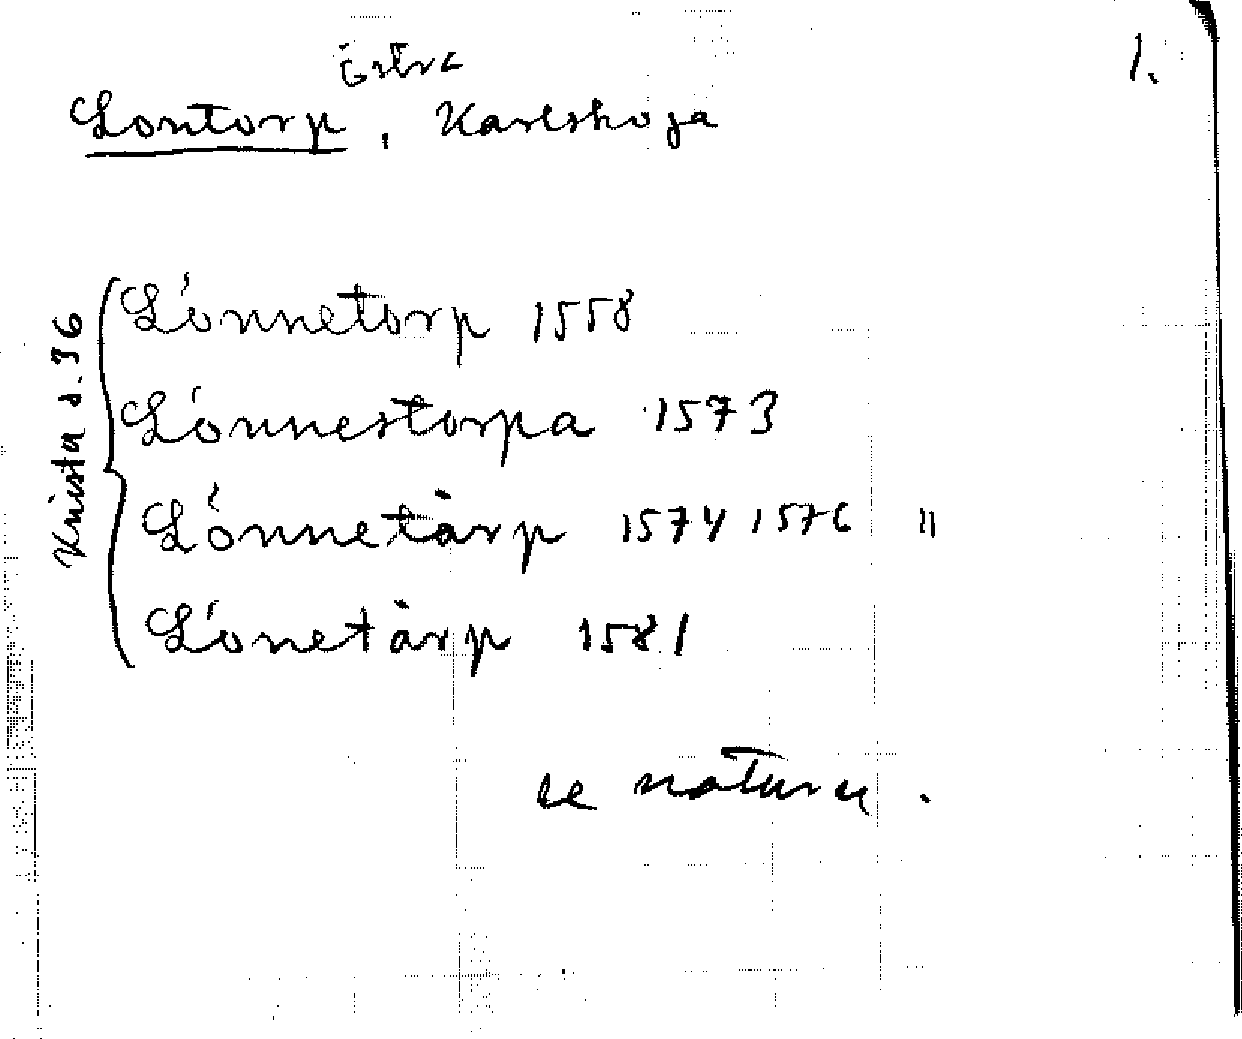 1.
östra
Lontorp, Karlskoga
Krista s. 36
Lönnetorp 1558
Lönnestorpa 1573
Lönnetårp 1574 1576 "
Lönetårp 1581
se naturn.